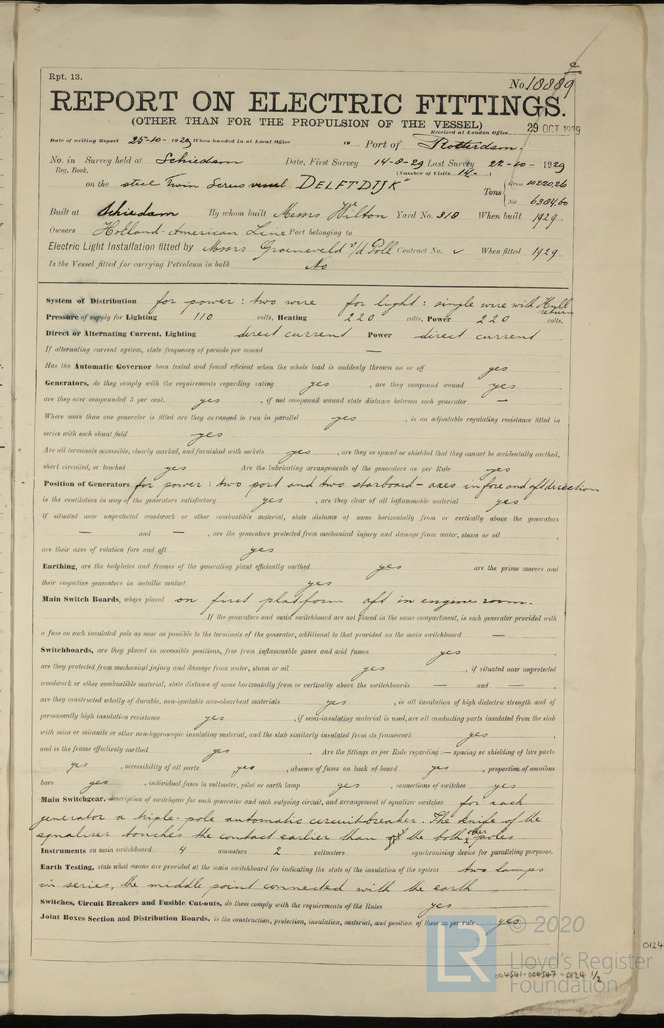 Rpt. 13.
No. 18889
REPORT ON ELECTRIC FITTINGS.
(OTHER THAN FOR THE PROPULSION OF THE VESSEL)
Received at London Office 29 OCT 1929
Date of writing Report 25-10-1929 When handed in at Local Office 19 Port of Rotterdam
No. in Survey held at Schiedam Date, First Survey 14-8-29 Last Survey 22-10-1929
Reg. Book. (Number of Visits 14.)
on the steel Twin Screw vessel "DELFTDIJK" Tons { Gross 10220,26
Net 6304.60
Built at Schiedam By whom built Messrs Wilton Yard No. 318 When built 1929
Owners Holland-American Line Port belonging to
Electric Light Installation fitted by Messrs Groeneveld v/d Poll Contract No. When fitted 1929
Is the Vessel fitted for carrying Petroleum in bulk No
System of Distribution for power: two wire for light: single wire with Hull return
Pressure of supply for Lighting 110 volts, Heating 220 volts, Power 220 volts.
Direct or Alternating Current, Lighting direct current Power direct current
If alternating current system, state frequency of periods per second —
Has the Automatic Governor been tested and found efficient when the whole load is suddenly thrown on or off yes
Generators, do they comply with the requirements regarding rating yes, are they compound wound yes
are they over compounded 5 per cent. yes, if not compound wound state distance between each generator —
Where more than one generator is fitted are they arranged to run in parallel yes, is an adjustable regulating resistance fitted in
series with each shunt field yes
Are all terminals accessible, clearly marked, and furnished with sockets yes, are they so spaced or shielded that they cannot be accidentally earthed,
short circuited, or touched yes Are the lubricating arrangements of the generators as per Rule yes
Position of Generators for power: two port and two starboard - axes in fore and aft direction
is the ventilation in way of the generators satisfactory yes, are they clear of all inflammable material yes
if situated near unprotected woodwork or other combustible material, state distance of same horizontally from or vertically above the generators
— and —, are the generators protected from mechanical injury and damage from water, steam or oil
are their axes of rotation fore and aft yes
Earthing, are the bedplates and frames of the generating plant efficiently earthed yes are the prime movers and
their respective generators in metallic contact yes
Main Switch Boards, where placed on first platform aft in engine room.
If the generators and main switchboard are not placed in the same compartment, is each generator provided with
a fuse on each insulated pole as near as possible to the terminals of the generator, additional to that provided on the main switchboard —
Switchboards, are they placed in accessible positions, free from inflammable gases and acid fumes yes
are they protected from mechanical injury and damage from water, steam or oil yes, if situated near unprotected
woodwork or other combustible material, state distance of same horizontally from or vertically above the switchboards — and —
are they constructed wholly of durable, non-ignitable non-absorbent materials yes, is all insulation of high dielectric strength and of
permanently high insulation resistance yes, if semi-insulating material is used, are all conducting parts insulated from the slab
with mica or micanite or other non-hygroscopic insulating material, and the slab similarly insulated from its framework yes
and is the frame effectively earthed yes. Are the fittings as per Rule regarding:— spacing or shielding of live parts
yes, accessibility of all parts yes, absence of fuses on back of board yes, proportion of omnibus
bars yes, individual fuses to voltmeter, pilot or earth lamp yes, connections of switches yes
Main Switchgear, description of switchgear for each generator and each outgoing circuit, and arrangement of equalizer switches for each
generator a triple-pole automatic circuitbreaker. The knife of the
equaliser touches the contact earlier than the both other poles
Instruments on main switchboard 4 ammeters 2 voltmeters synchronising device for paralleling purposes.
Earth Testing, state what means are provided at the main switchboard for indicating the state of the insulation of the system two lamps
in series, the middle point connected with the earth
Switches, Circuit Breakers and Fusible Cut-outs, do these comply with the requirements of the Rules yes
Joint Boxes Section and Distribution Boards, is the construction, protection, insulation, material, and position of these as per rule yes
© 2020
LR
Lloyd's Register
Foundation
004541-004547-0124 1/2
0124